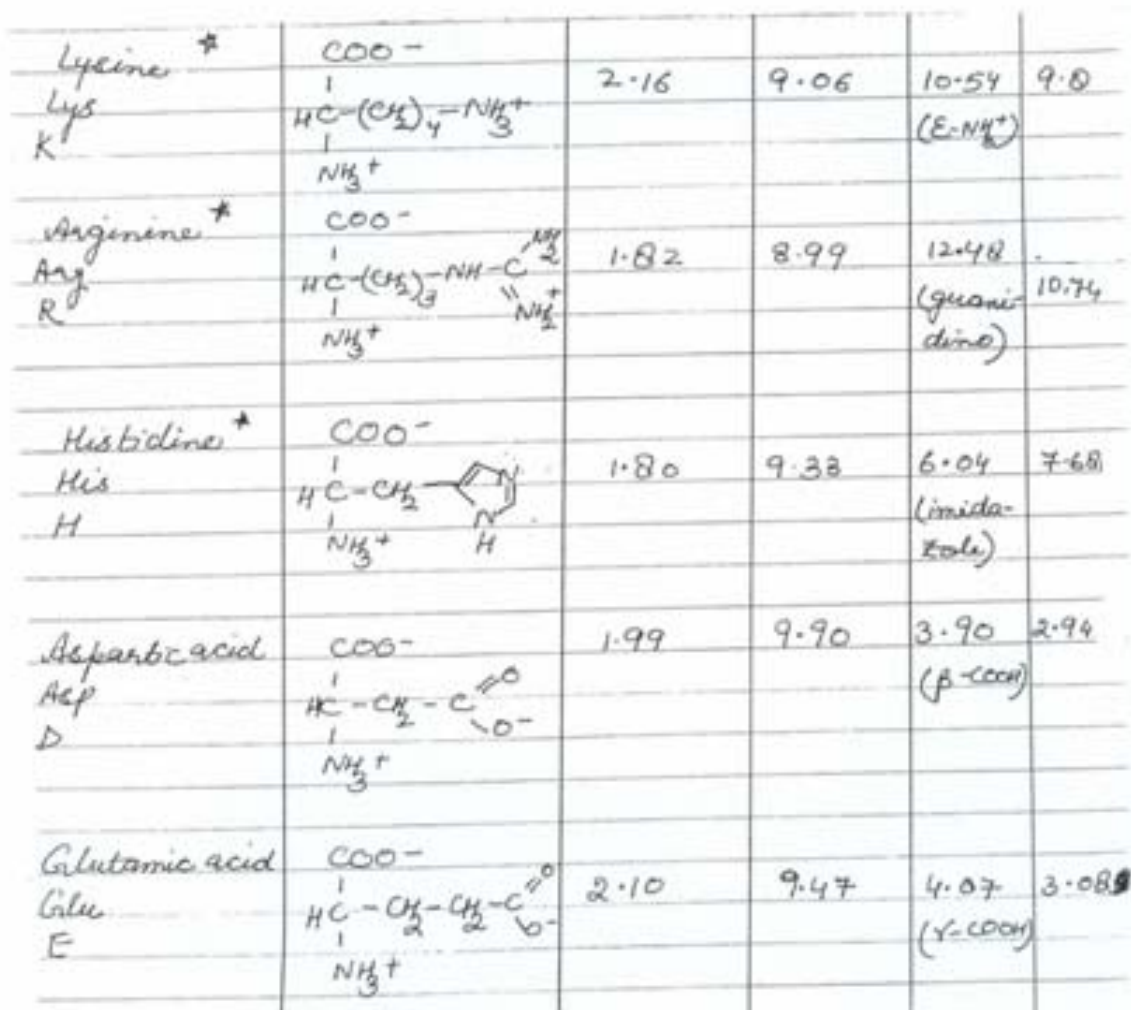 Lysine *
Lys
K
COO-
HC-(CH2)4-NH3+
NH3+
2.16
9.06
10.54
(ε-NH3+)
9.8
Arginine *
Arg
R
COO-
HC-(CH2)3-NH-C
NH2
NH2+
NH3+
1.82
8.99
12.48
(guani-
dino)
10.74
Histidine *
His
H
COO-
HC-CH2
N
N
H
NH3+
1.80
9.33
6.04
(imida-
zole)
7.68
Aspartic acid
Asp
D
COO-
HC-CH2-C
O
O-
NH3+
1.99
9.90
3.90
(β-COOH)
2.94
Glutamic acid
Glu
E
COO-
HC-CH2-CH2-C
O
O-
NH3+
2.10
9.47
4.07
(γ-COOH)
3.08